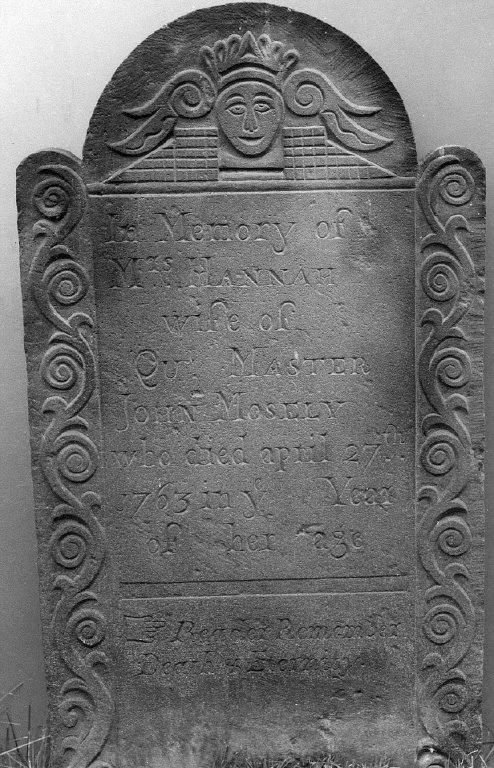 In Memory of
Mrs HANNAH
wife of
Qur MASTER
JOHN MOSELY
who died april 27th
1763 in ye Year
of her age
☞ Reader Remember
Death & Eternity